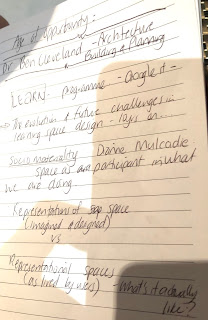 Age of opportunity:
Dr Ben Cleveland - Architecture
Building & Planning
LEARN - programme - Google it -
The evolution & future challenges in
learning space design - 10yrs on...
Sociomateriality Dianne Mulcadie
space as an participant in what
we are doing.
Representations of space
(imagined & designed)
vs
Representational spaces
(as lived by users) - What's it actually
like?